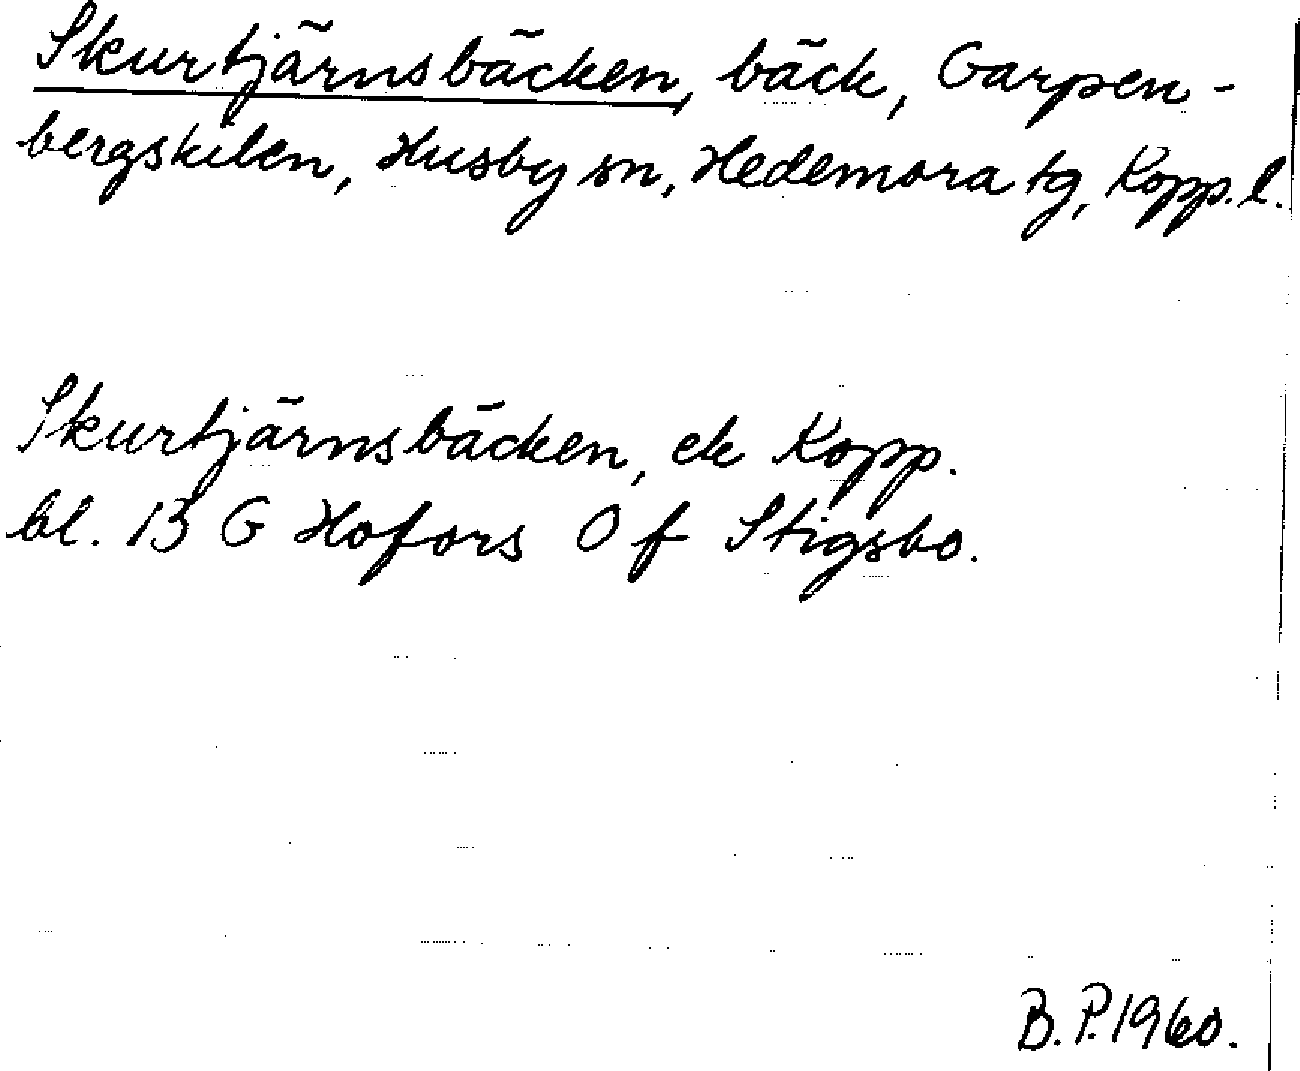 Skurtjärnsbäcken, bäck, Garpen-
bergskilen, Husby sn, Hedemora tg, Kopp. l.
Skurtjärnsbäcken, ek Kopp.
bl. 13 G Hofors 0 f Stigsbo.
B.P. 1960.